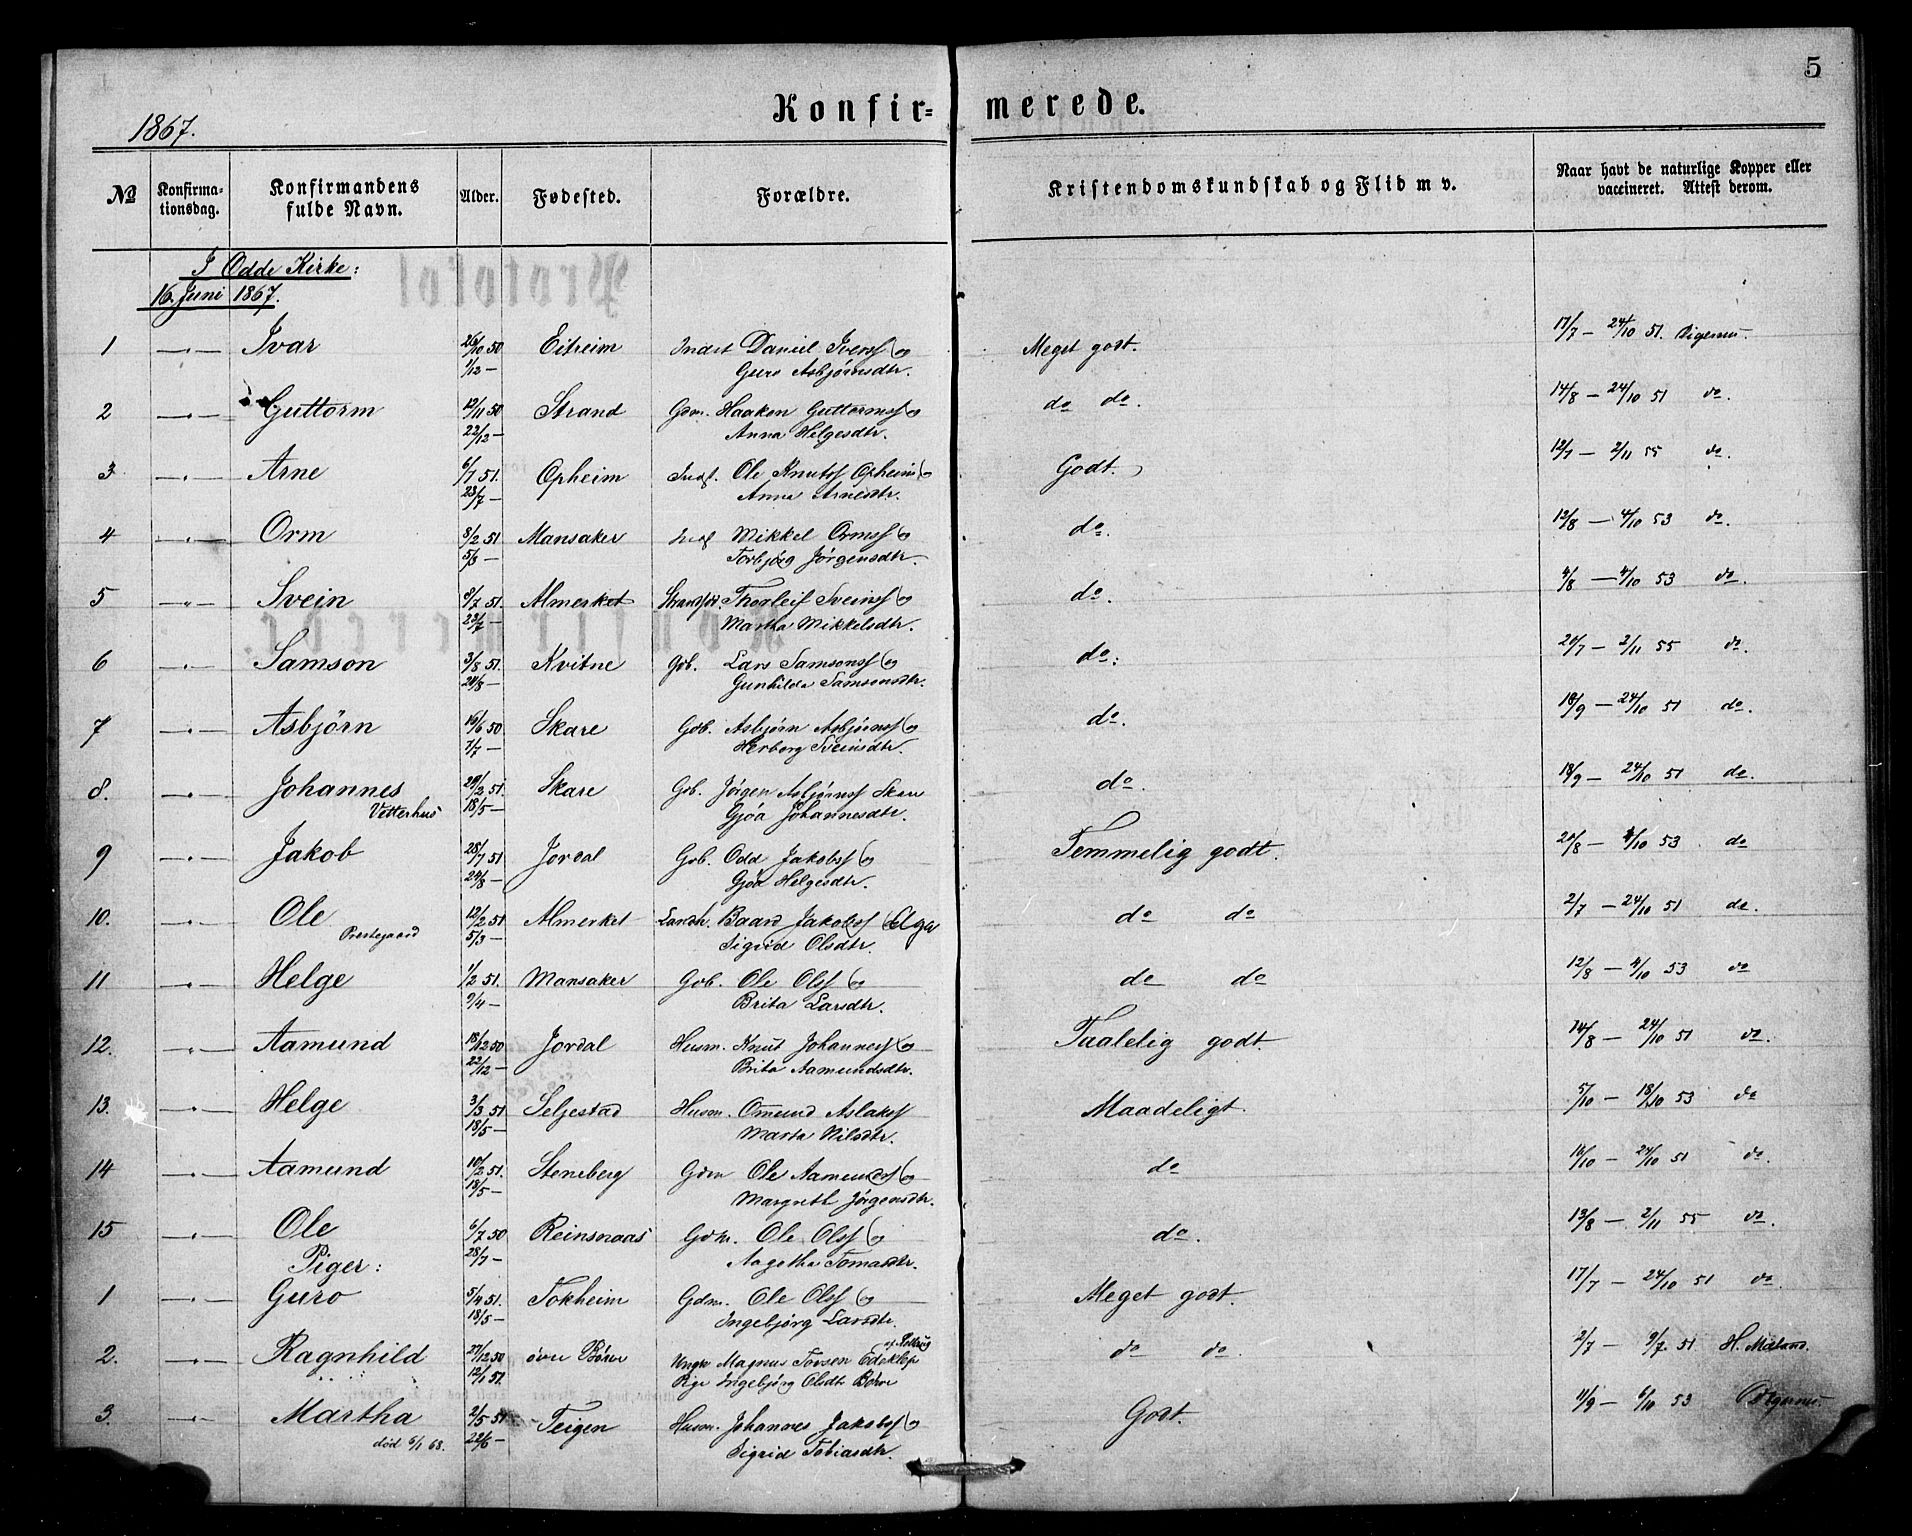 5
1867.
Konfir= merede.
No Konfirma- tionsdag. Konfirmandens fulde Navn. Alder. Fødested. Forældre. Kristendomskundskab og Flid m v. Naar havt de naturlige Kopper eller vaccineret. Attest derom.
I Odde Kirke:
16. Juni 1867.
1 —"— Ivar 26/10 50 Eitreim Daniel Iverss og Meget godt. 17/7 — 24/10 51.
1/12 — Guro Asbjørnsdtr.
2 —"— Guttorm 12/11 50 Strand Gdm. Haaken Guttormss og do do. 14/8 — 24/10 51 do.
22/12 — Anna Helgesdtr.
3 —"— Arne 6/7 51. Opheim Ole Knutss Opheim og Godt. 12/7 — 2/11 55 do.
23/7 — Anna Arnesdtr.
4 —"— Orm 8/2 51 Mansaker Mikkel Ormss og do. 12/8 — 4/10 53 do.
5/3 — Torbjørg Jørgensdtr.
5 —"— Svein 8/7 51. Almerket Thorleif Sveinss og do. 4/8 — 4/10 53 do.
23/7 — Martha Mikkelsdtr.
6 —"— Samson 3/8 51. Kvitne Gob. Lars Samsonss og do: 20/7 — 2/11 55 do.
24/8 — Gunhilda Samsonsdtr.
7 —"— Asbjörn 16/6 50 Skare Gob. Asbjørn Asbjørnss og do. 18/9 — 24/10 51 do.
7/7 — Herborg Sveinsdtr.
8. —"— Johannes 51. Skare Gob. Jörgen Asbjørnss Skare do. 18/9 — 24/10 51 do.
Vetterhus 18/5 — Gjøa Johannesdtr.
9 —"— Jakob 28/7 51 Jordal Gob. Odd Jakobss og Temmelig godt. 20/8 — 4/10 53 do
24/8 — Gjøa Helgesdtr.
10. —"— Ole 12/2 51 Almerket Baard Jakobss do do 2/7 — 24/10 51 do.
Prestegaard 5/3 — Sigrid Olsdtr.
11 —"— Helge 1/2 51. Mansaker Gob. Ole Olss og do do 12/8 — 4/10 53 do
9/4 — Brita Larsdtr.
12. —"— Aamund 18/12 50 Jordal Husm. Knut Johanness og Taalelig godt. 14/8 — 24/10 51 do.
22/12 — Brita Aamundsdtr.
13. —"— Helge 3/3 51 Seljestad Husm. Omund Aslakss Maadeligt. 5/10 — 18/10 53 do
18/5 — Marta Nilsdtr.
14 —"— Aamund 10/2 51. Steneberg Gdm Ole Aamundss og do 16/10 — 24/10 51 do.
18/5 — Margreth Jørgensdtr.
15 —"— Ole 6/7 50 Reinsnaas Gdm. Ole Olss og do. 13/8 — 2/11 55 do.
28/7 — Aagetha Tomasdtr.
Piger:
1 —"— Guro 5/4 51. Tokheim Gdm. Ole Olss og Meget godt. 17/7 — 24/10 51 do
18/5 — Ingebjörg Larsdtr.
2. —"— Ragnhild 27/12 50 øvre Børve Ungk Magnus Torsen do do. 2/7 — 9/7 51
12/1 51. Pige Ingebjørg Olsdtr Børve
3. —"— Martha 2/5 51 Teigen Husm. Johannes Jakobss og Godt. 11/9 — 6/10 53
død 6/1 68. 22/6 — Sigrid Tobiasdtr.